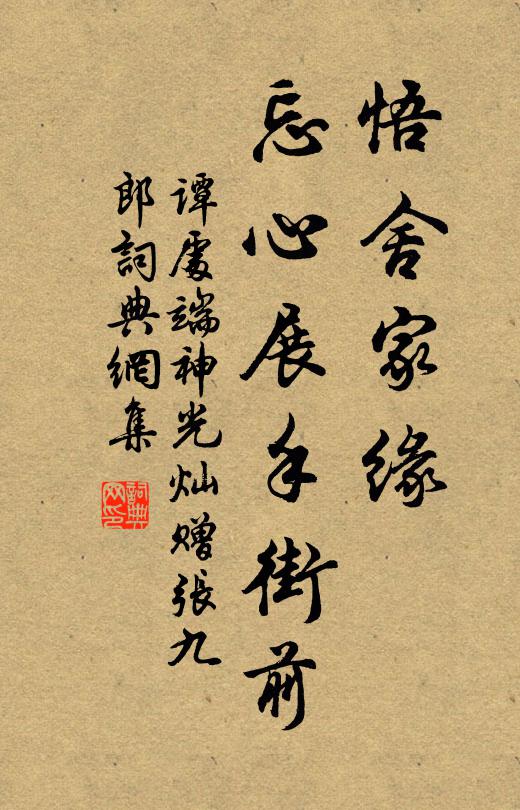 悟舍家缘
忘心展手街前
谭處端神光灿赠張九
郎詞典網集
詞典网印